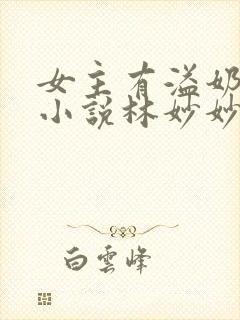 女主有溢奶
小說林妙妙
白雲峰